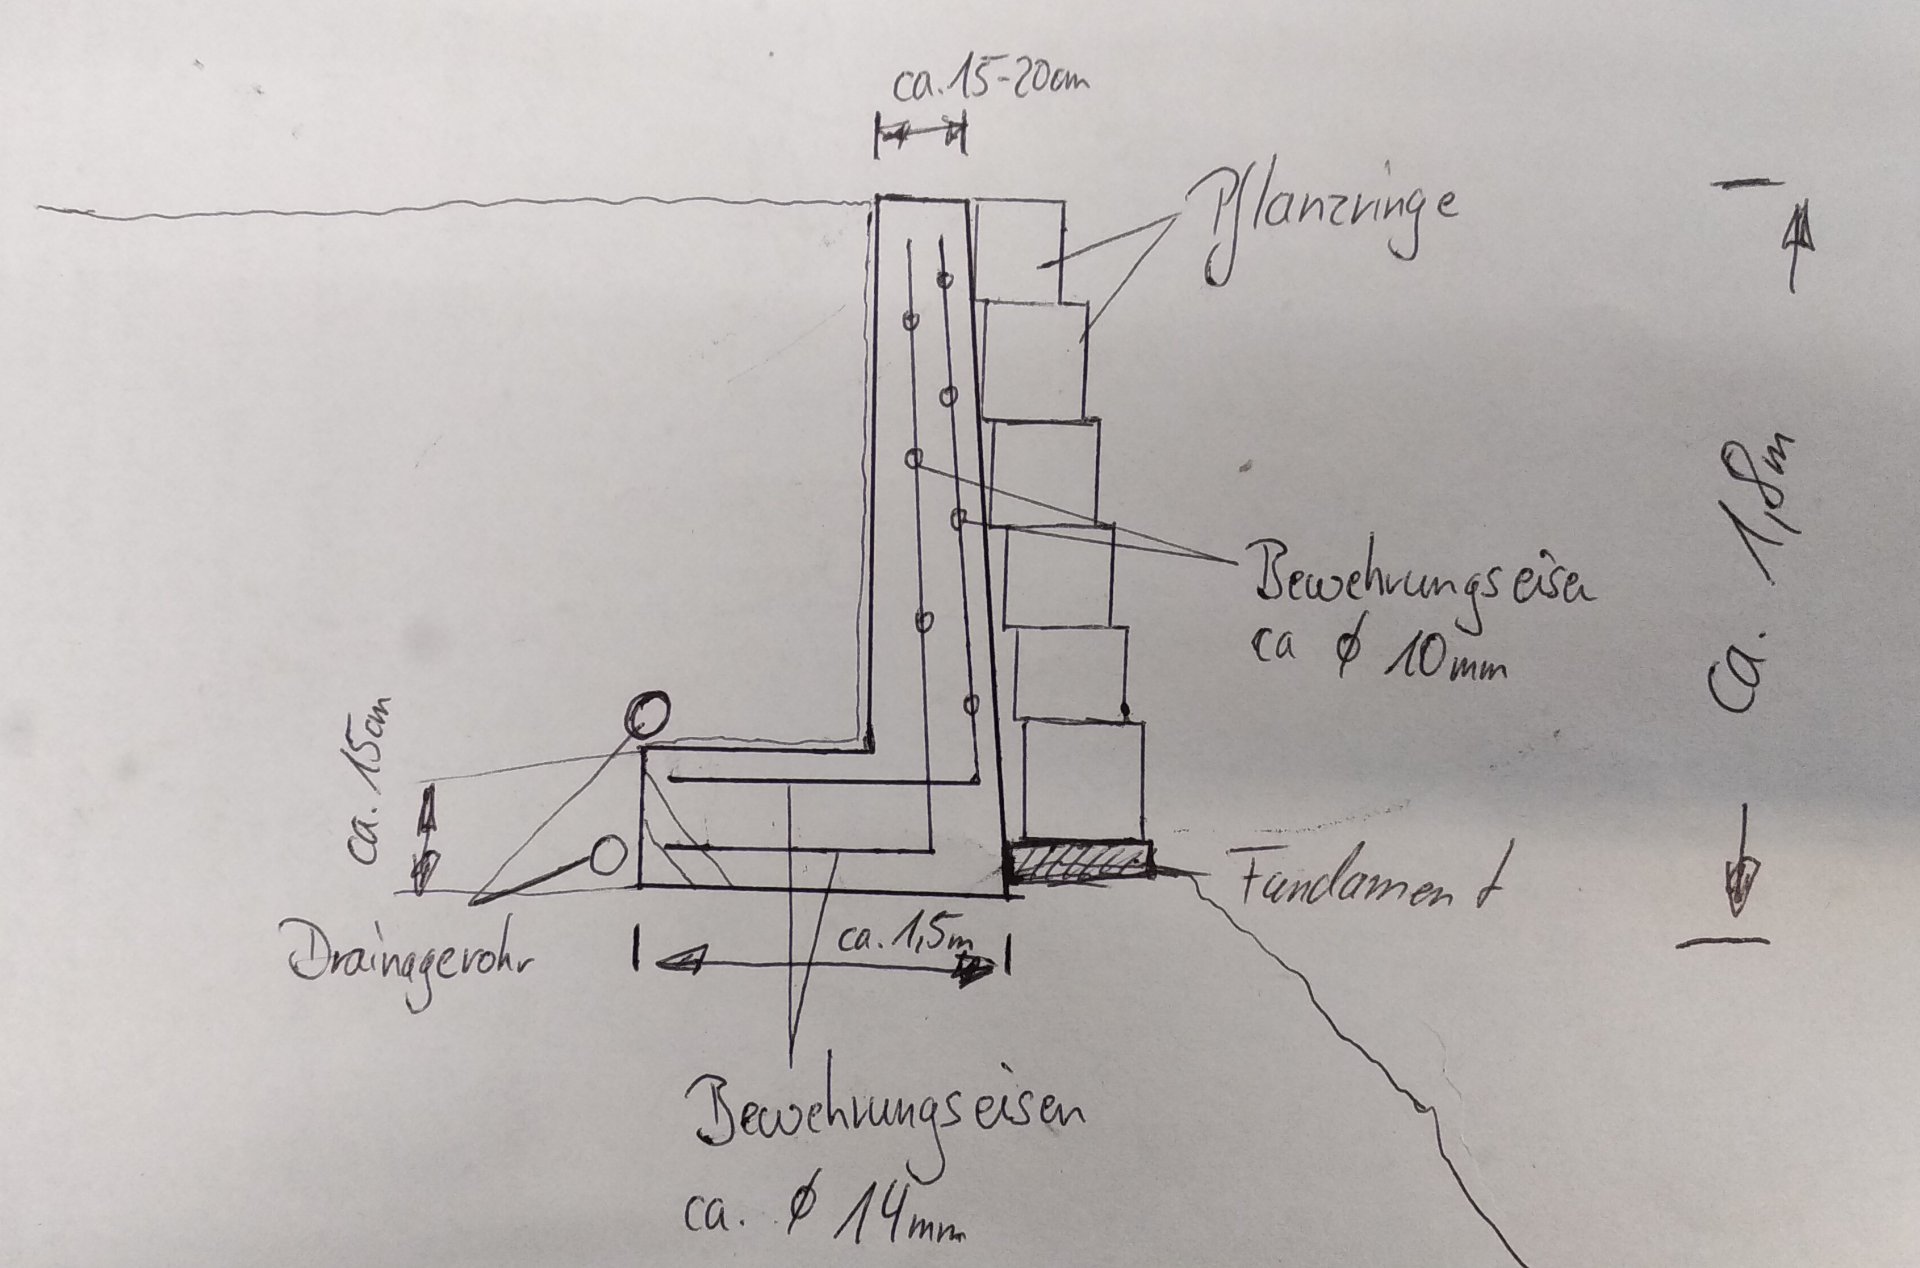 ca. 15-20cm
Pflanzringe
ca. 1,8m
Bewehrungseisen
ca ϕ 10mm
ca. 15cm
Fundament
Drainagerohr
ca. 1,5m
Bewehrungseisen
ca. ϕ 14mm